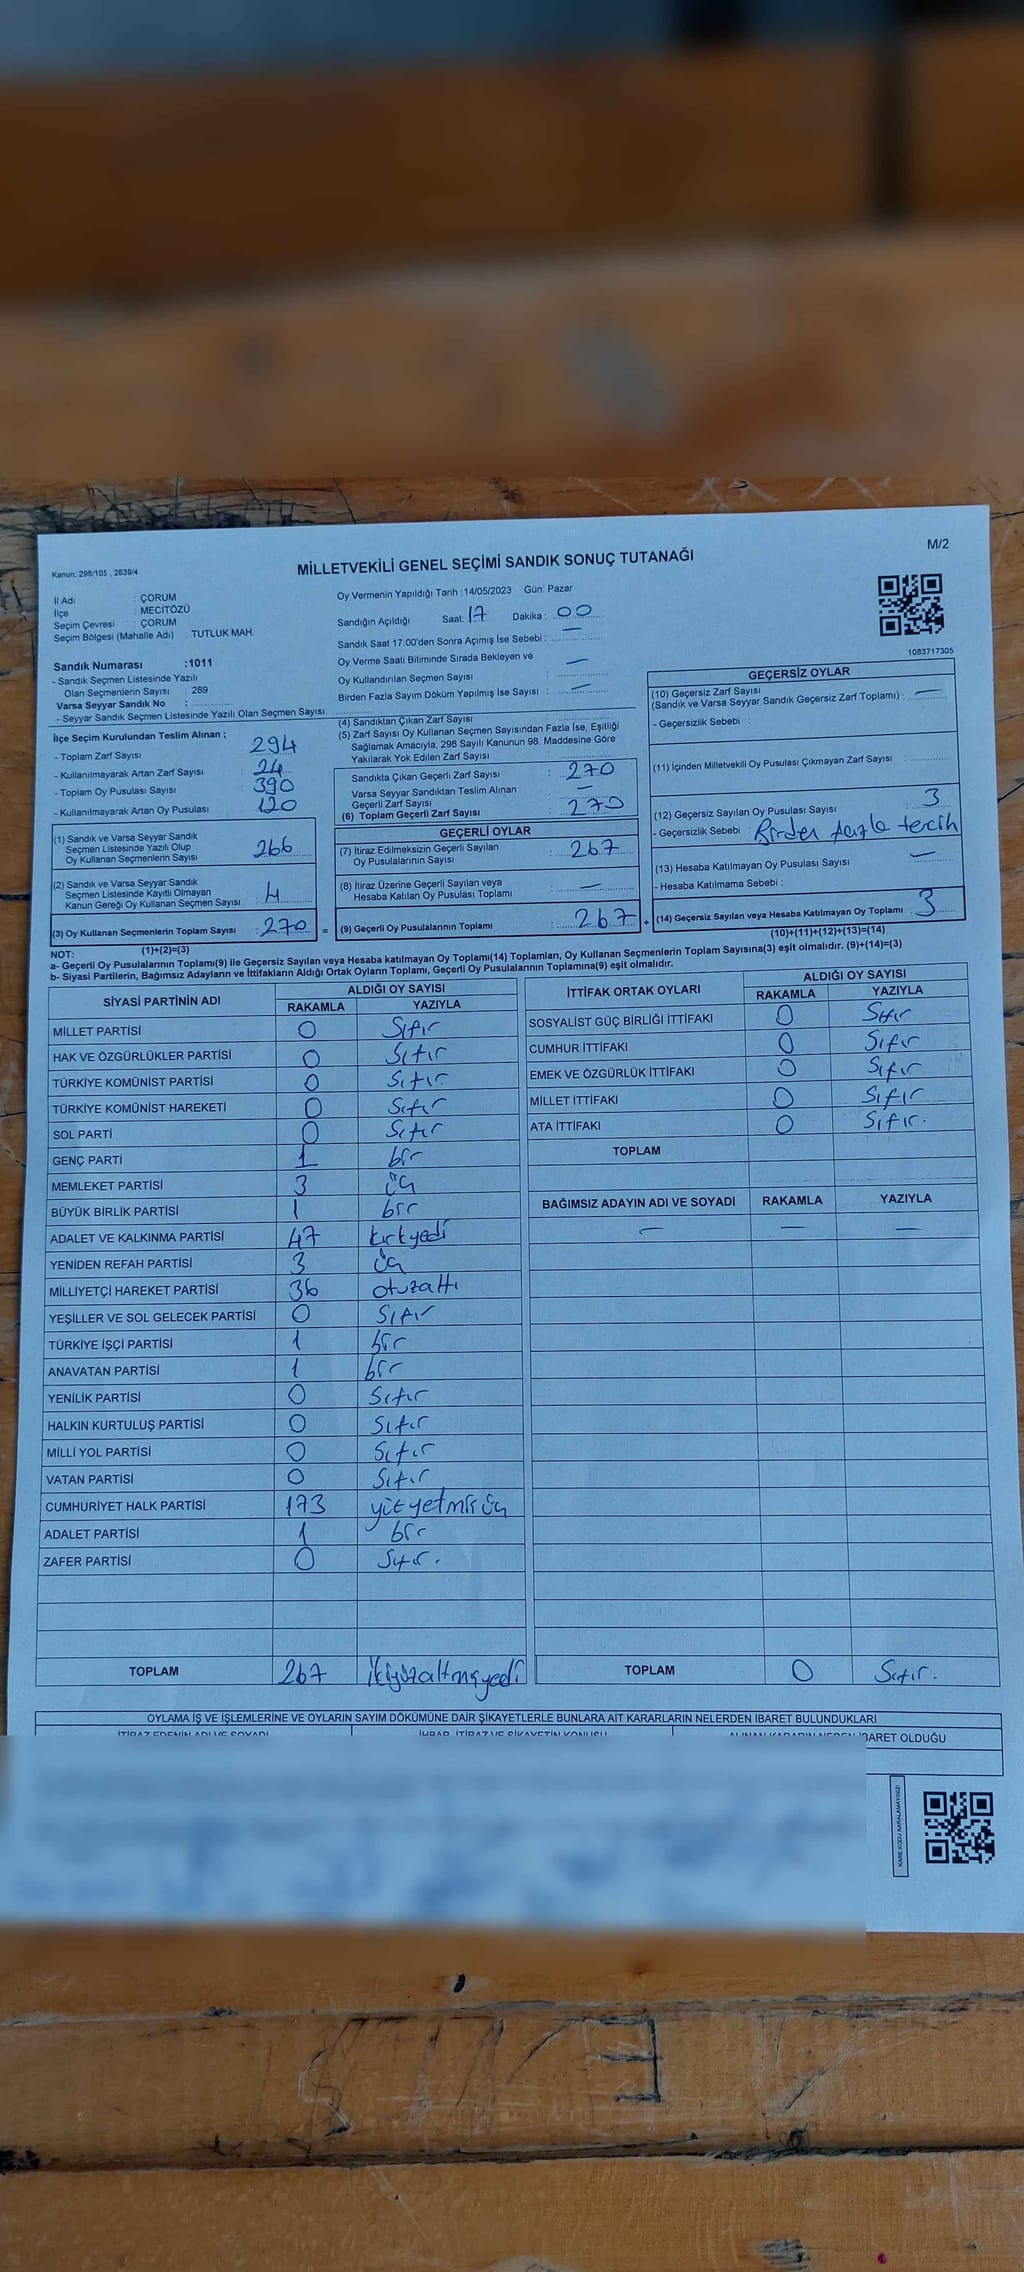 Kanun: 298/105 , 2839/4
MİLLETVEKİLİ GENEL SEÇİMİ SANDIK SONUÇ TUTANAĞI
M/2
İl Adı : ÇORUM
İlçe : MECİTÖZÜ
Seçim Çevresi : ÇORUM
Seçim Bölgesi (Mahalle Adı) : TUTLUK MAH.
Sandık Numarası :1011
- Sandık Seçmen Listesinde Yazılı
Olan Seçmenlerin Sayısı : 289
Varsa Seyyar Sandık No :
- Seyyar Sandık Seçmen Listesinde Yazılı Olan Seçmen Sayısı:
Oy Vermenin Yapıldığı Tarih :14/05/2023 Gün: Pazar
Sandığın Açıldığı Saat: 17 Dakika : 00
Sandık Saat 17:00'den Sonra Açımış İse Sebebi : —
Oy Verme Saati Bitiminde Sırada Bekleyen ve
Oy Kullandırılan Seçmen Sayısı : —
Birden Fazla Sayım Döküm Yapılmış İse Sayısı : —
1083717305
İlçe Seçim Kurulundan Teslim Alınan :
- Toplam Zarf Sayısı 294
- Kullanılmayarak Artan Zarf Sayısı : 24
- Toplam Oy Pusulası Sayısı : 390
- Kullanılmayarak Artan Oy Pusulası : 120
(1) Sandık ve Varsa Seyyar Sandık
Seçmen Listesinde Yazılı Olup
Oy Kullanan Seçmenlerin Sayısı : 266
(2) Sandık ve Varsa Seyyar Sandık
Seçmen Listesinde Kayıtlı Olmayan
Kanun Gereği Oy Kullanan Seçmen Sayısı : 4
(3) Oy Kullanan Seçmenlerin Toplam Sayısı : 270
(1)+(2)=(3)
(4) Sandıktan Çıkan Zarf Sayısı
(5) Zarf Sayısı Oy Kullanan Seçmen Sayısından Fazla İse, Eşitliği
Sağlamak Amacıyla, 298 Sayılı Kanunun 98. Maddesine Göre
Yakılarak Yok Edilen Zarf Sayısı
Sandıkta Çıkan Geçerli Zarf Sayısı : 270
Varsa Seyyar Sandıktan Teslim Alınan
Geçerli Zarf Sayısı : —
(6) Toplam Geçerli Zarf Sayısı : 270
GEÇERLİ OYLAR
(7) İtiraz Edilmeksizin Geçerli Sayılan
Oy Pusulalarının Sayısı : 267
(8) İtiraz Üzerine Geçerli Sayılan veya
Hesaba Katılan Oy Pusulası Toplamı : —
= (9) Geçerli Oy Pusulalarının Toplamı : 267 +
GEÇERSİZ OYLAR
(10) Geçersiz Zarf Sayısı
(Sandık ve Varsa Seyyar Sandık Geçersiz Zarf Toplamı) : —
- Geçersizlik Sebebi :
(11) İçinden Milletvekili Oy Pusulası Çıkmayan Zarf Sayısı :
(12) Geçersiz Sayılan Oy Pusulası Sayısı 3
- Geçersizlik Sebebi : Birden fazla tercih
(13) Hesaba Katılmayan Oy Pusulası Sayısı —
- Hesaba Katılmama Sebebi :
(14) Geçersiz Sayılan veya Hesaba Katılmayan Oy Toplamı : 3
(10)+(11)+(12)+(13)=(14)
NOT:
a- Geçerli Oy Pusulalarının Toplamı(9) ile Geçersiz Sayılan veya Hesaba katılmayan Oy Toplamı(14) Toplamları, Oy Kullanan Seçmenlerin Toplam Sayısına(3) eşit olmalıdır. (9)+(14)=(3)
b- Siyasi Partilerin, Bağımsız Adayların ve İttifakların Aldığı Ortak Oyların Toplamı, Geçerli Oy Pusulalarının Toplamına(9) eşit olmalıdır.
SİYASİ PARTİNİN ADI ALDIĞI OY SAYISI
RAKAMLA YAZIYLA
MİLLET PARTİSİ 0 Sıfır
HAK VE ÖZGÜRLÜKLER PARTİSİ 0 Sıfır
TÜRKİYE KOMÜNİST PARTİSİ 0 Sıfır
TÜRKİYE KOMÜNİST HAREKETİ 0 Sıfır
SOL PARTİ 0 Sıfır
GENÇ PARTİ 1 bir
MEMLEKET PARTİSİ 3 üç
BÜYÜK BİRLİK PARTİSİ 1 bir
ADALET VE KALKINMA PARTİSİ 47 kırkyedi
YENİDEN REFAH PARTİSİ 3 üç
MİLLİYETÇİ HAREKET PARTİSİ 36 otuzaltı
YEŞİLLER VE SOL GELECEK PARTİSİ 0 Sıfır
TÜRKİYE İŞÇİ PARTİSİ 1 bir
ANAVATAN PARTİSİ 1 bir
YENİLİK PARTİSİ 0 Sıfır
HALKIN KURTULUŞ PARTİSİ 0 Sıfır
MİLLİ YOL PARTİSİ 0 Sıfır
VATAN PARTİSİ 0 Sıfır
CUMHURİYET HALK PARTİSİ 173 yüzyetmişüç
ADALET PARTİSİ 1 bir
ZAFER PARTİSİ 0 Sıfır.
TOPLAM 267 İkiyüzaltmışyedi
İTTİFAK ORTAK OYLARI ALDIĞI OY SAYISI
RAKAMLA YAZIYLA
SOSYALİST GÜÇ BİRLİĞİ İTTİFAKI 0 Sıfır
CUMHUR İTTİFAKI 0 Sıfır
EMEK VE ÖZGÜRLÜK İTTİFAKI 0 Sıfır
MİLLET İTTİFAKI 0 Sıfır
ATA İTTİFAKI 0 Sıfır.
TOPLAM
BAĞIMSIZ ADAYIN ADI VE SOYADI RAKAMLA YAZIYLA
— — —
TOPLAM 0 Sıfır.
OYLAMA İŞ VE İŞLEMLERİNE VE OYLARIN SAYIM DÖKÜMÜNE DAİR ŞİKAYETLERLE BUNLARA AİT KARARLARIN NELERDEN İBARET BULUNDUKLARI
İTİRAZ EDENİN ADI VE SOYADI İHBAR, İTİRAZ VE ŞİKAYETİN KONUSU ALINAN KARARIN NEDEN İBARET OLDUĞU
KARE KODU KARALAMAYINIZ!